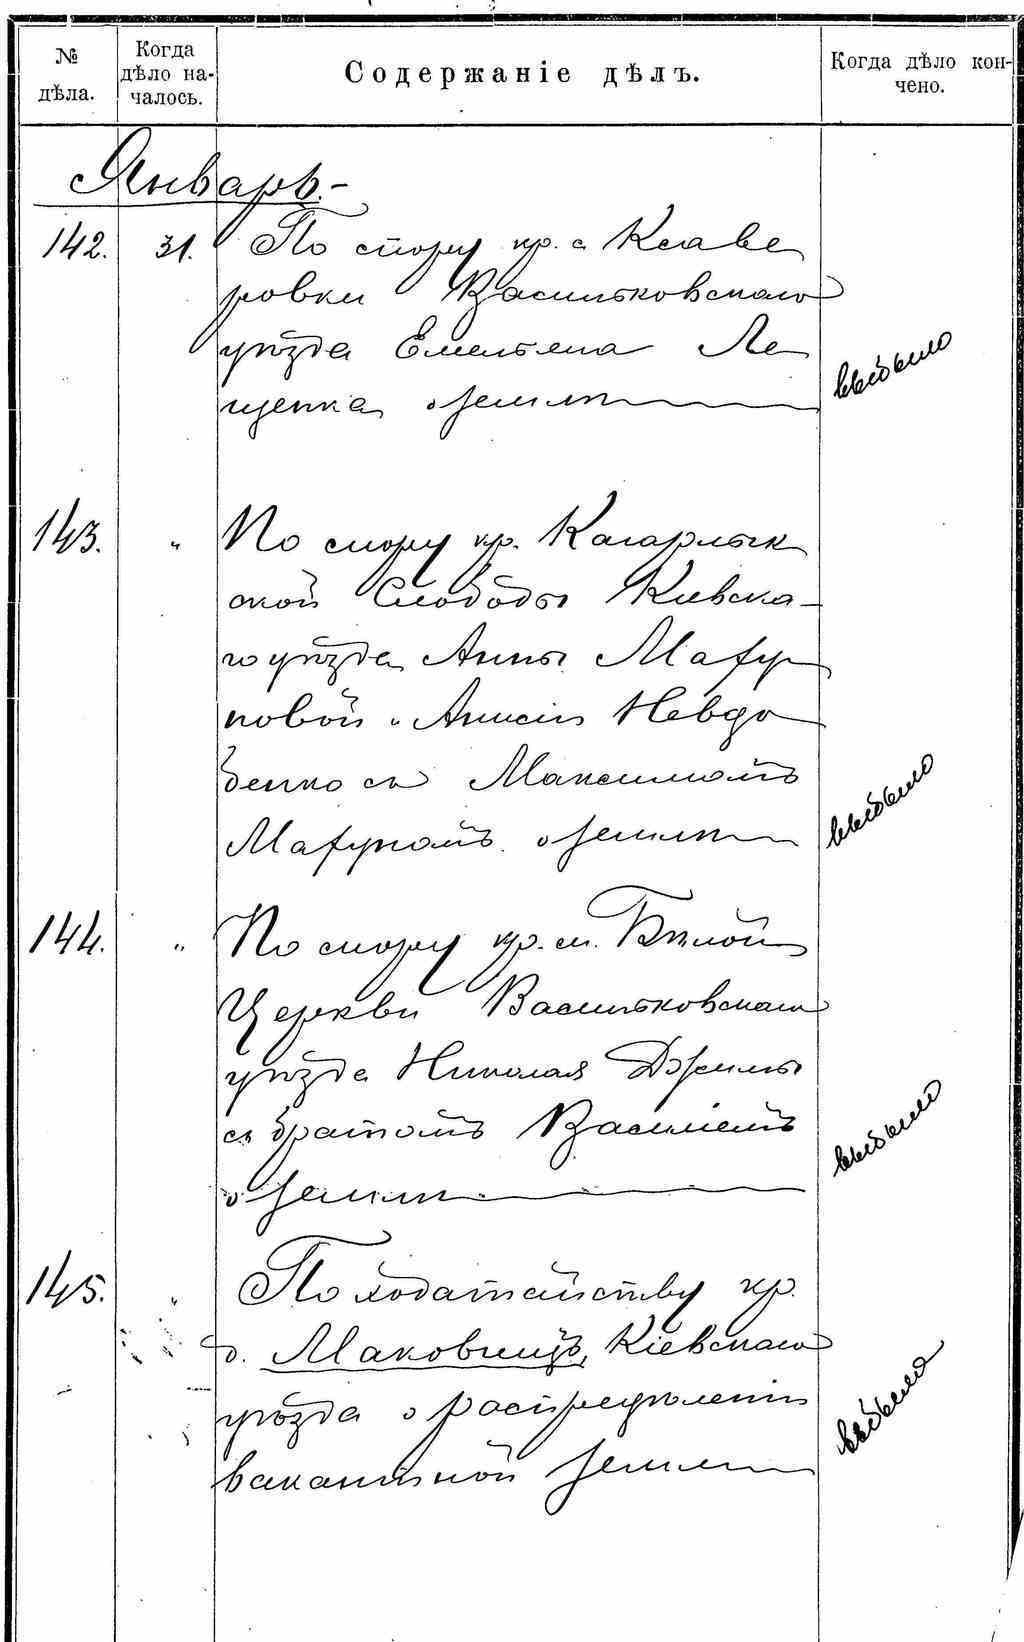 № дѣла.
Когда дѣло на-
чалось.
Содержаніе дѣлъ.
Когда дѣло кон-
чено.
Январь.-
142. 31. По спору кр. с Ксаве
ровки Васильковскаго
уѣзда Емельяна Ле
щенка о землѣ
выбыло
143. " По спору кр. Кагарлык
ской Слободы Кіевска-
го уѣзда Анны Мазу
ковой и Анисіи Невдо
бенко съ Максимомъ
Мазукомъ о землѣ
выбыло
144. " По спору кр. м. Бѣлой
Церкви Васильковскаго
уѣзда Николая Джилы
съ братомъ Василіемъ
о землѣ
выбыло
145. " По ходатайству кр.
д. Маковищъ, Кіевскаго
уѣзда о распредѣленіи
вакантной земли
выбыло